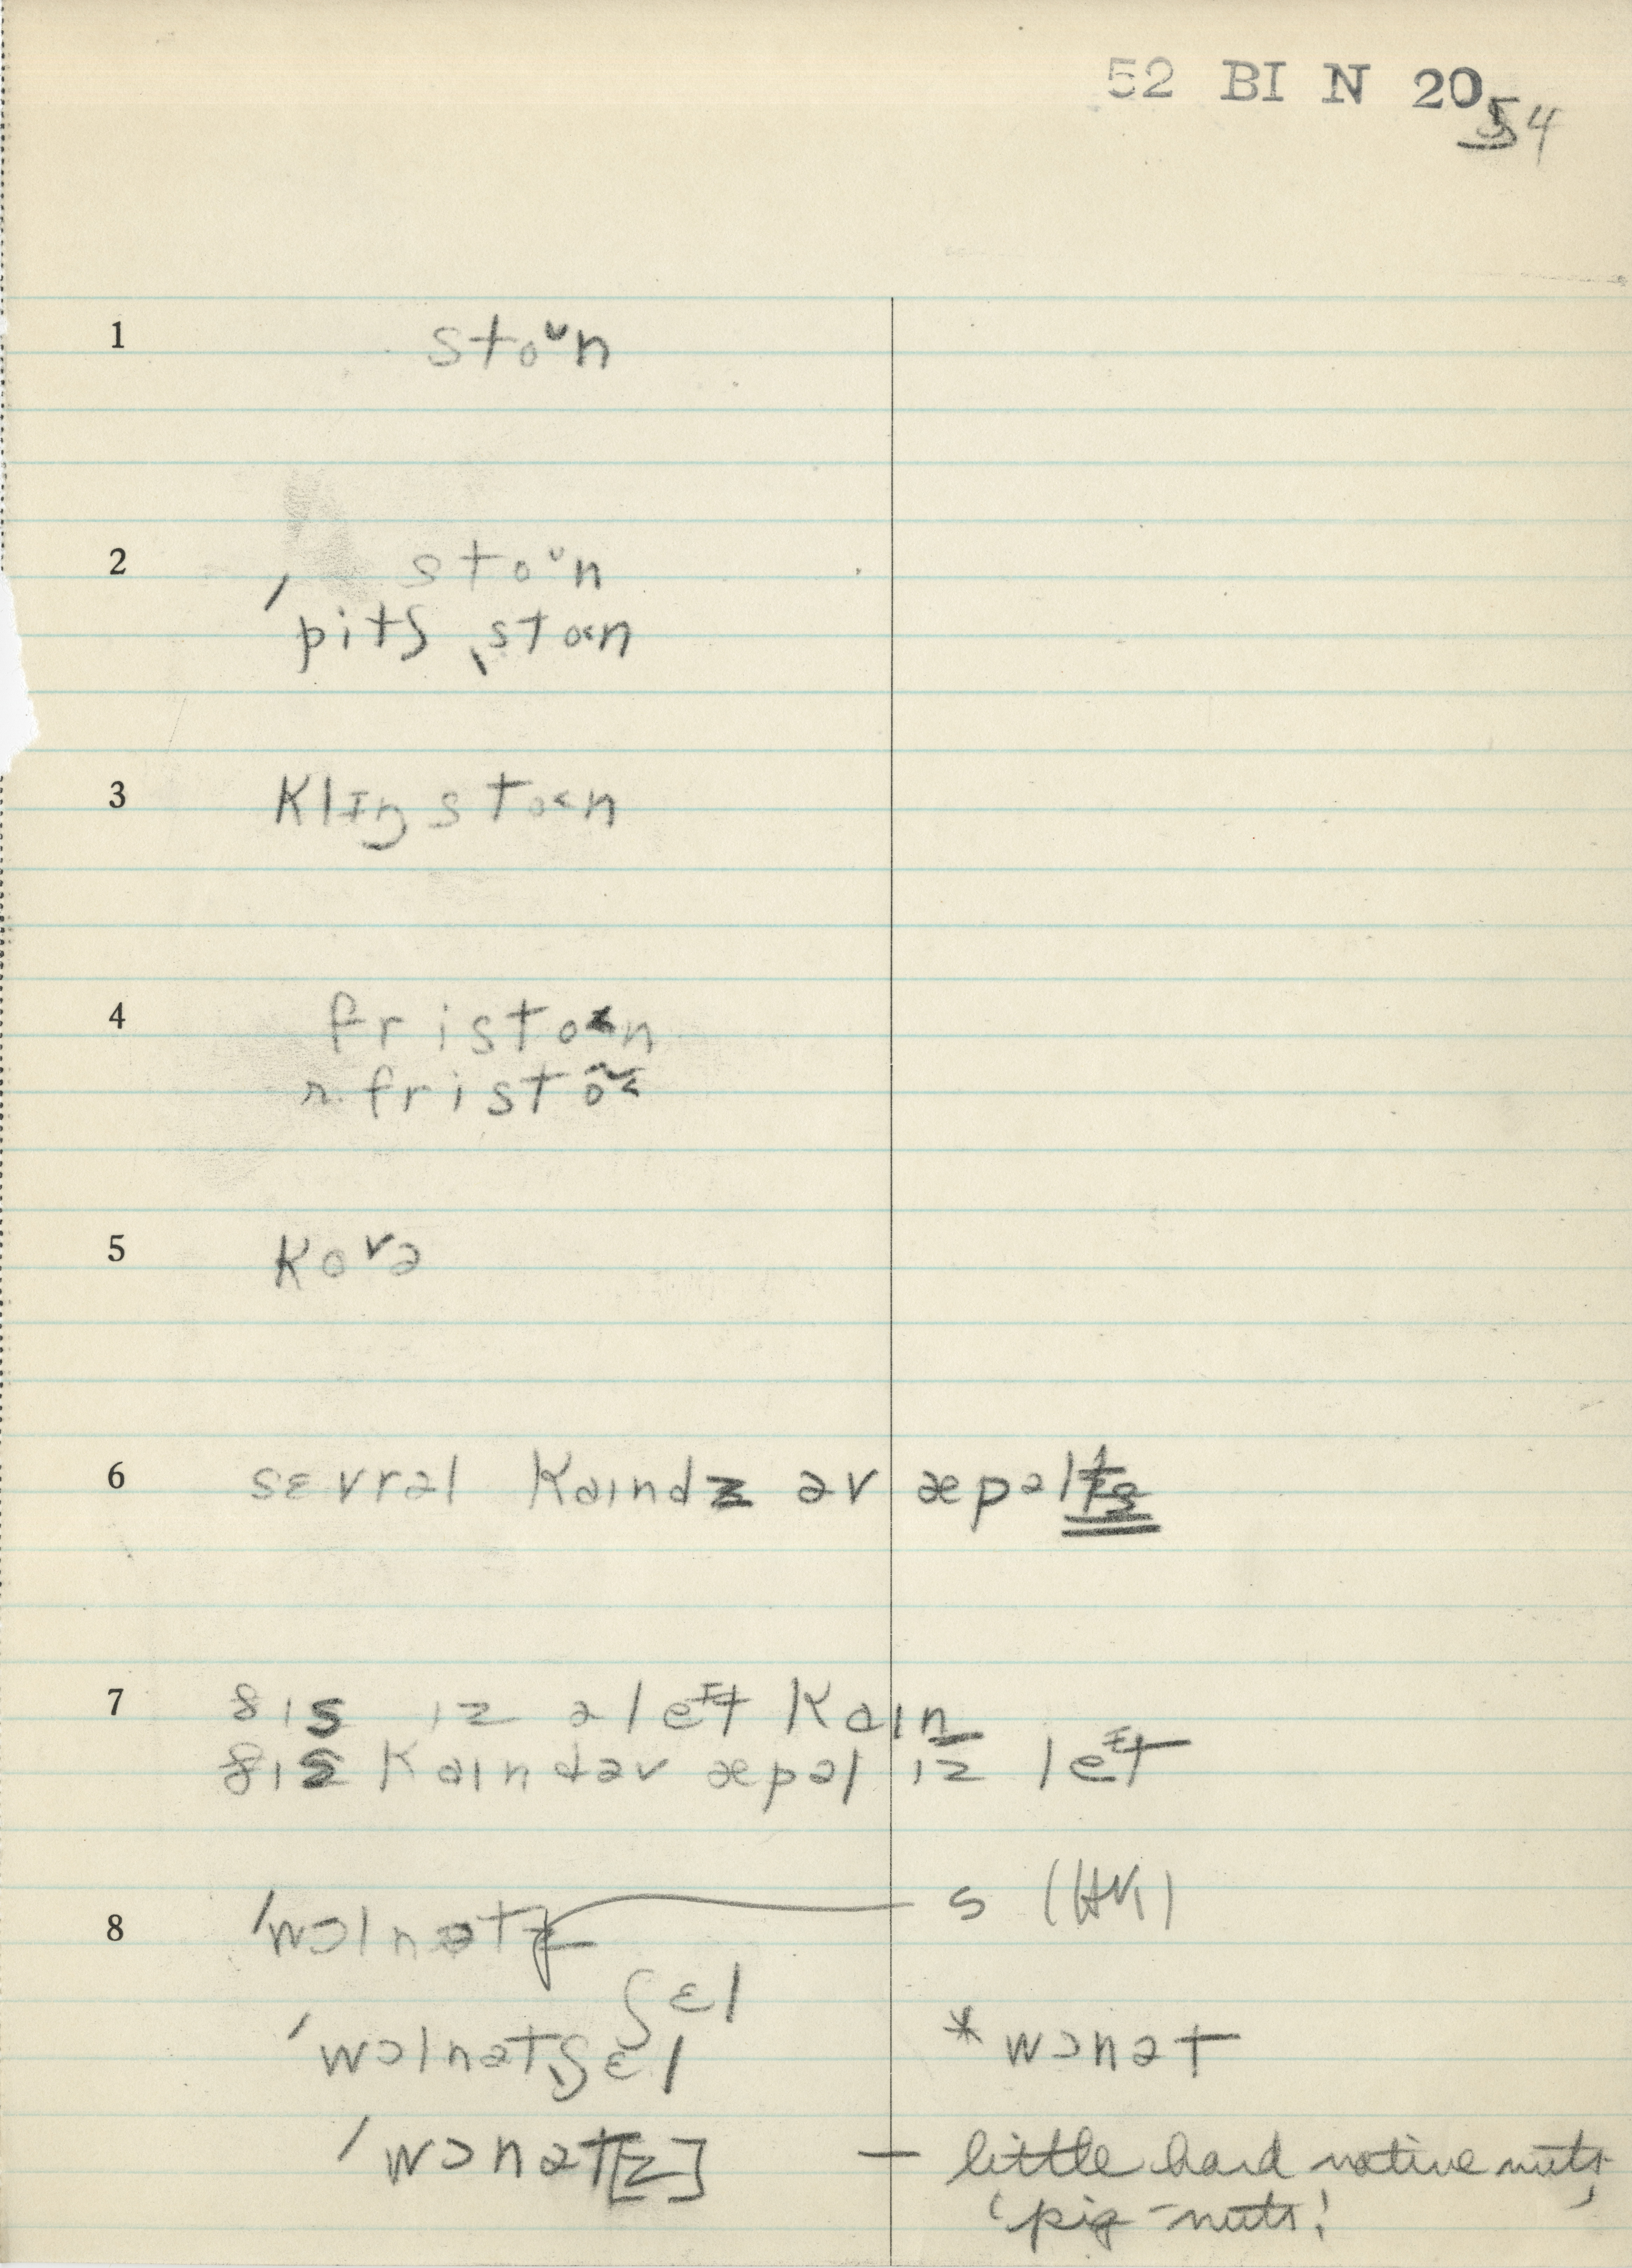 52 BI N 20
54
1 stoᵛn
2 stoᵛn
ˈpitʃ ˌsto<n
3 klɪŋsto<n
4 fristo<n
n. fristõ<
5 koᵛə
6 sɛvrəl kaɪndz əv æpəl
7 ðɪs ɪz ə leᶦt kaɪn
ðɪs kaɪnd əv æpəl ɪz leᶦt
8 ˈwɔlnətz s (HK)
ʃɛl
ˈwɔlnətˌʃɛl * wɔnət
ˈwɔnət[z] — little hard native nuts,
'pig-nuts'.